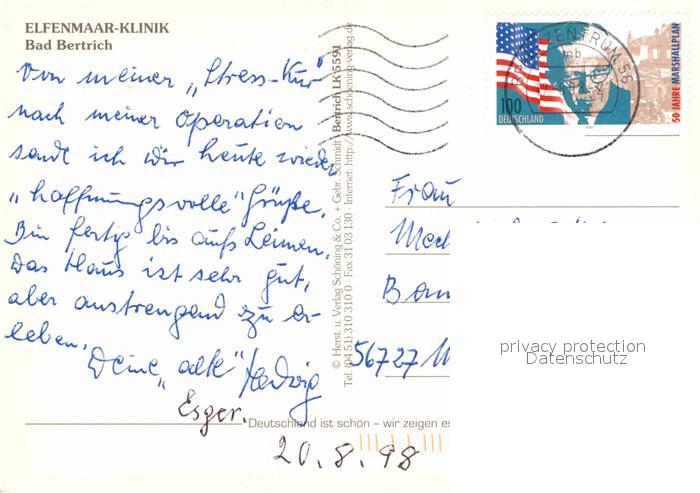 ELFENMAAR-KLINIK
Bad Bertrich
Von meiner „Stress-Kur"
nach meiner Operation
sende ich Dir heute wieder
„hoffnungsvolle" Grüße.
Bin fertig bis aufs Leimen.
Das Haus ist sehr gut,
aber anstrengend zu er-
leben.
Deine „alte" Hedwig
Esger.
20.8.98
© Herst. u. Verlag Schöning & Co. + Gebr. Schmidt · Bertrich LK 5591
Tel. (04 51) 310 310 0 · Fax 31 03 130 · Internet: http://www.schoening-verlag.de
Deutschland ist schön – wir zeigen es
ZENTRUM 56
100
DEUTSCHLAND
50 JAHRE MARSHALLPLAN
Frau
56727
privacy protection
Datenschutz